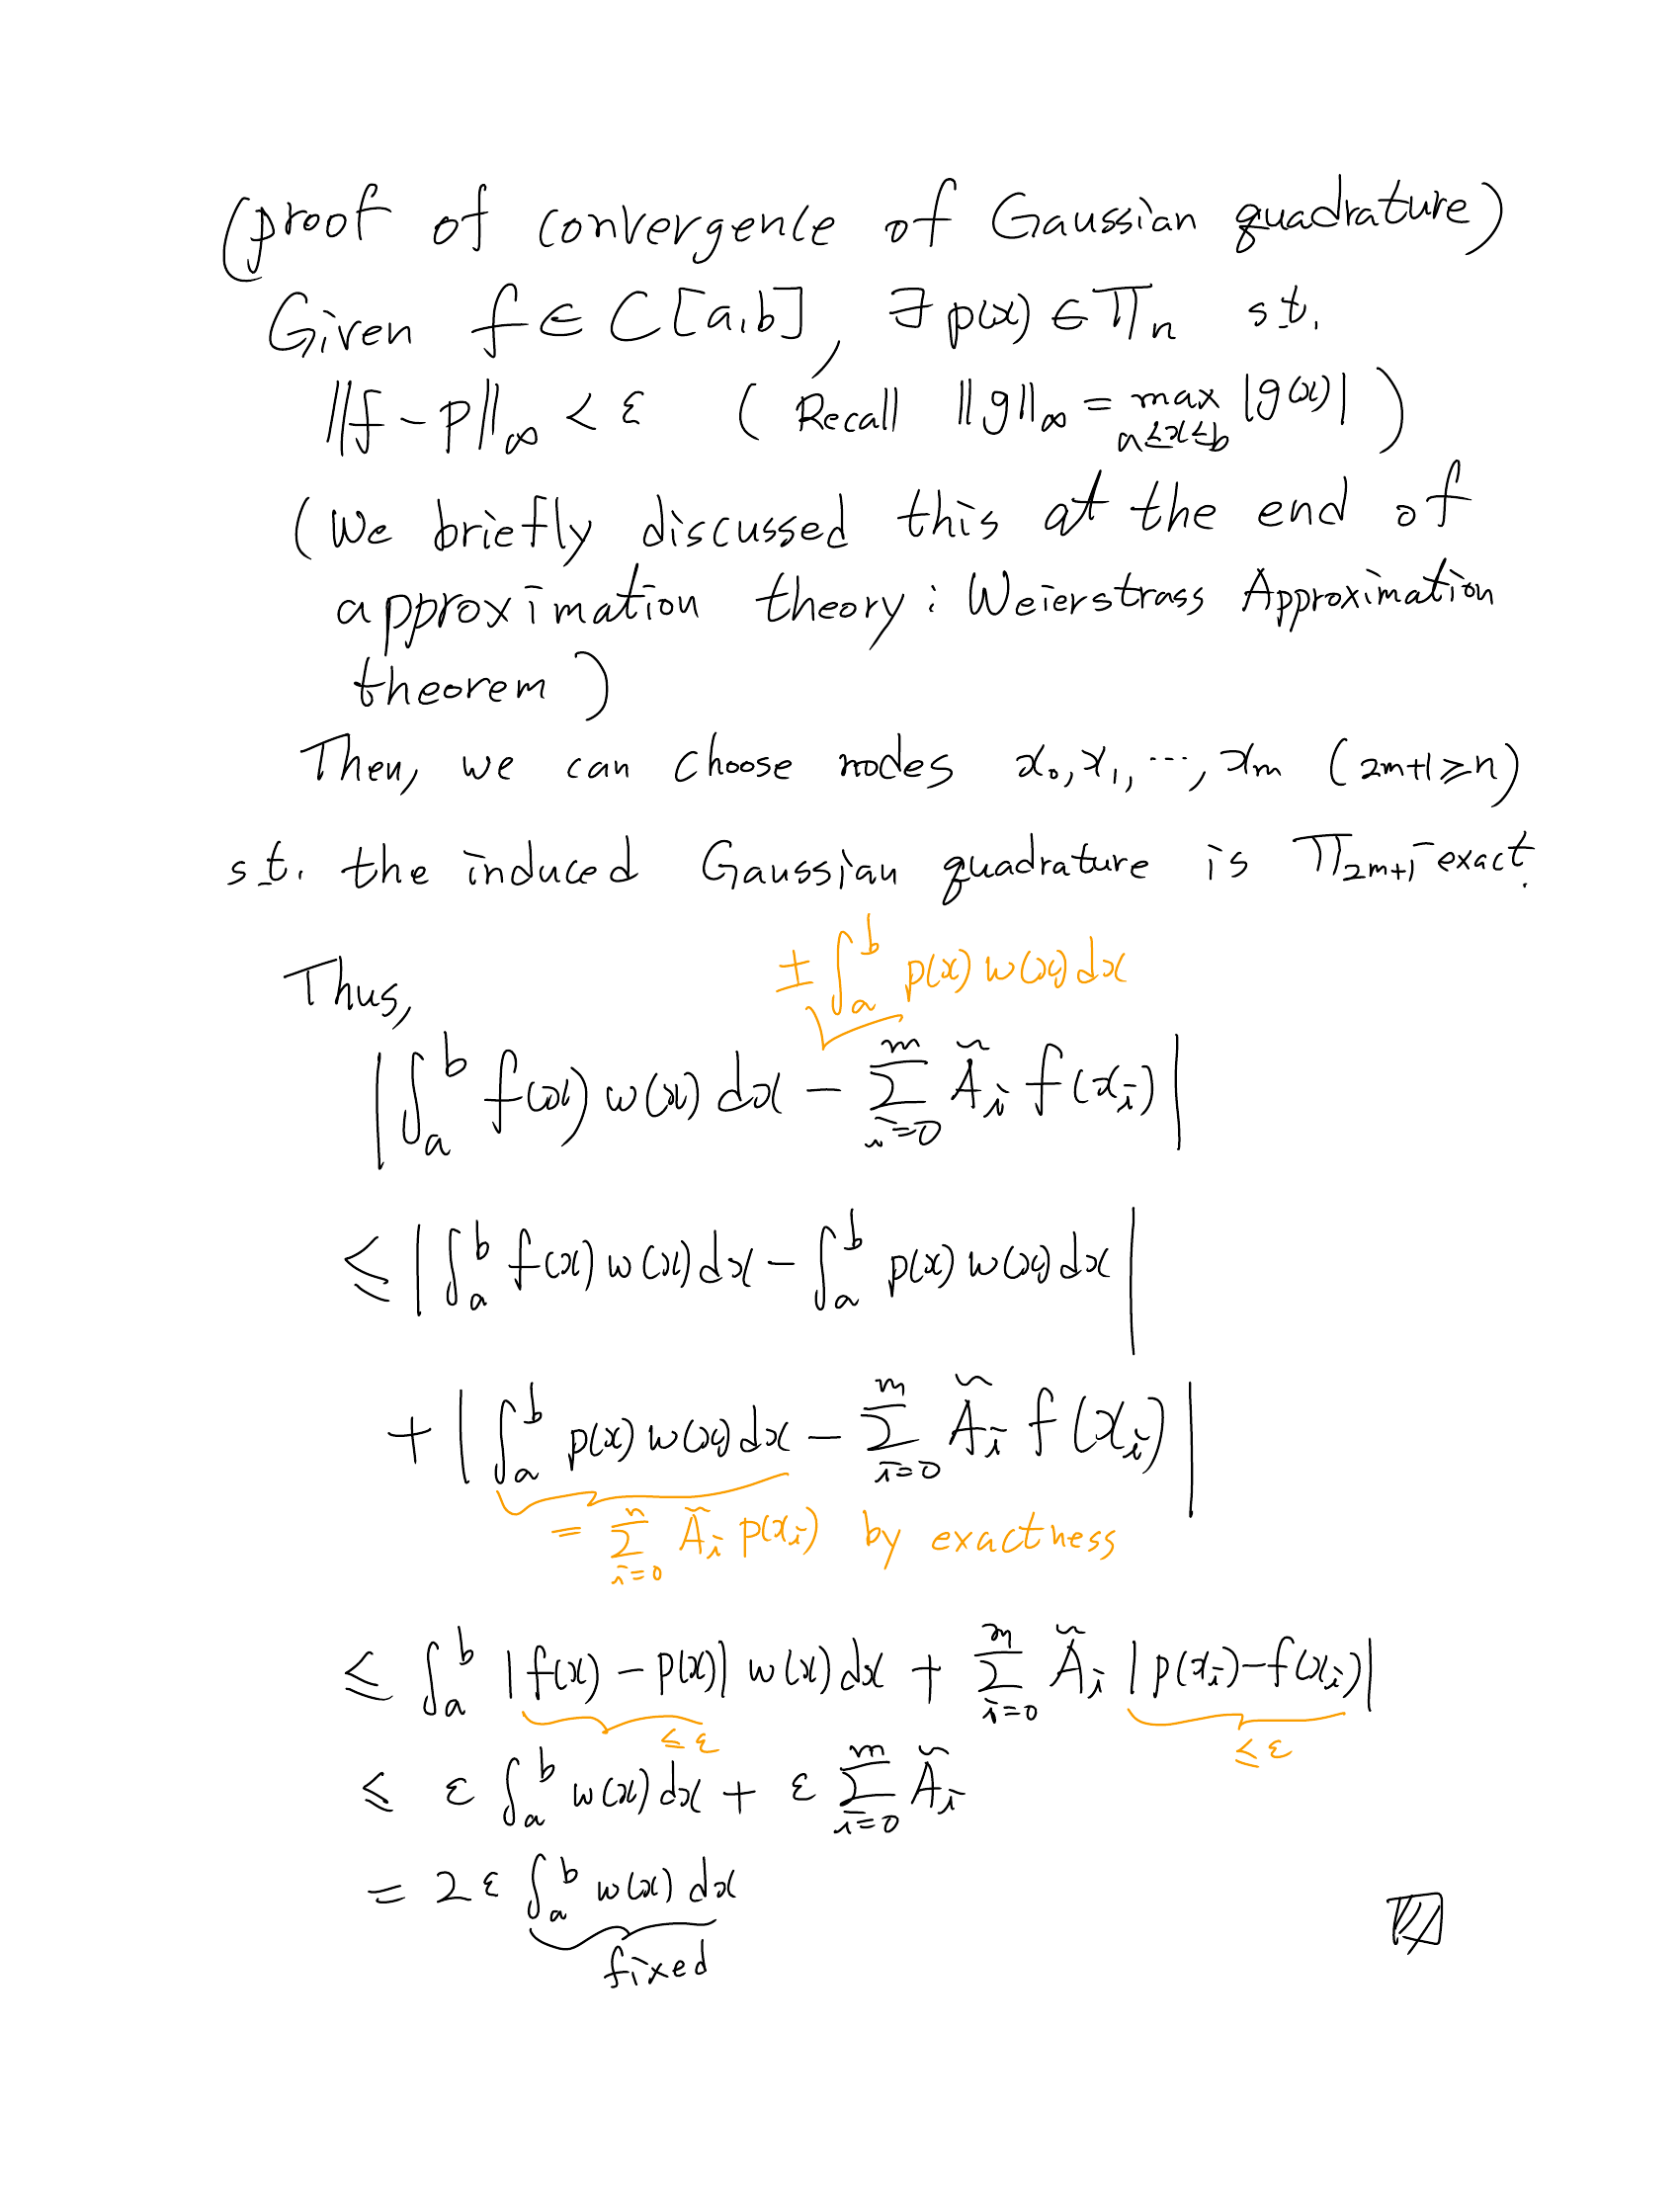 (proof of convergence of Gaussian quadrature)
Given f ∈ C[a,b], ∃ p(x) ∈ Πₙ s.t.
‖f - p‖∞ < ε ( Recall ‖g‖∞ = max_{a≤x≤b} |g(x)| )
(We briefly discussed this at the end of
approximation theory : Weierstrass Approximation
theorem )
Then, we can choose nodes x₀, x₁, ⋯, xₘ (2m+1 ≥ n)
s.t. the induced Gaussian quadrature is Π_{2m+1}-exact.
± ∫_a^b p(x) w(x) dx
Thus,
| ∫_a^b f(x) w(x) dx - ∑_{i=0}^m Ã_i f(x_i) |
≤ | ∫_a^b f(x) w(x) dx - ∫_a^b p(x) w(x) dx |
+ | ∫_a^b p(x) w(x) dx - ∑_{i=0}^m Ã_i f(x_i) |
= ∑_{i=0}^n Ã_i p(x_i) by exactness
≤ ∫_a^b |f(x) - p(x)| w(x) dx + ∑_{i=0}^m Ã_i |p(x_i) - f(x_i)|
≤ ε ≤ ε
≤ ε ∫_a^b w(x) dx + ε ∑_{i=0}^m Ã_i
= 2 ε ∫_a^b w(x) dx
fixed